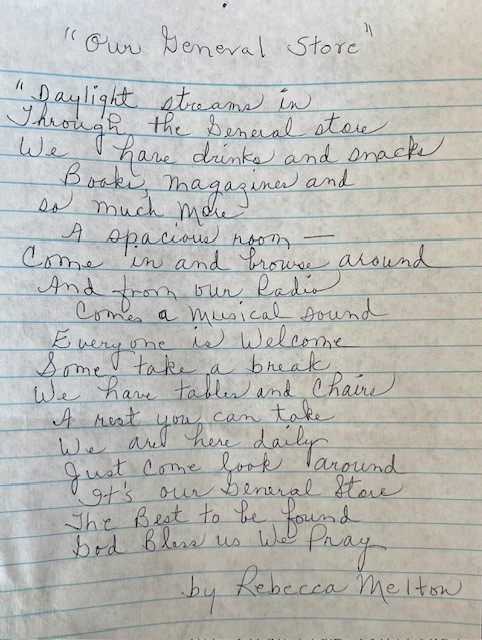 "Our General Store"
"Daylight streams in
Through the General store
We have drinks and snacks
Books, magazines and
so much more
A spacious room —
Come in and browse around
And from our Radio
Comes a musical sound
Everyone is Welcome
Some take a break
We have tables and Chairs
A rest you can take
We are here daily
Just Come look around
It's our General Store
The Best to be found
God Bless us We Pray
by Rebecca Melton